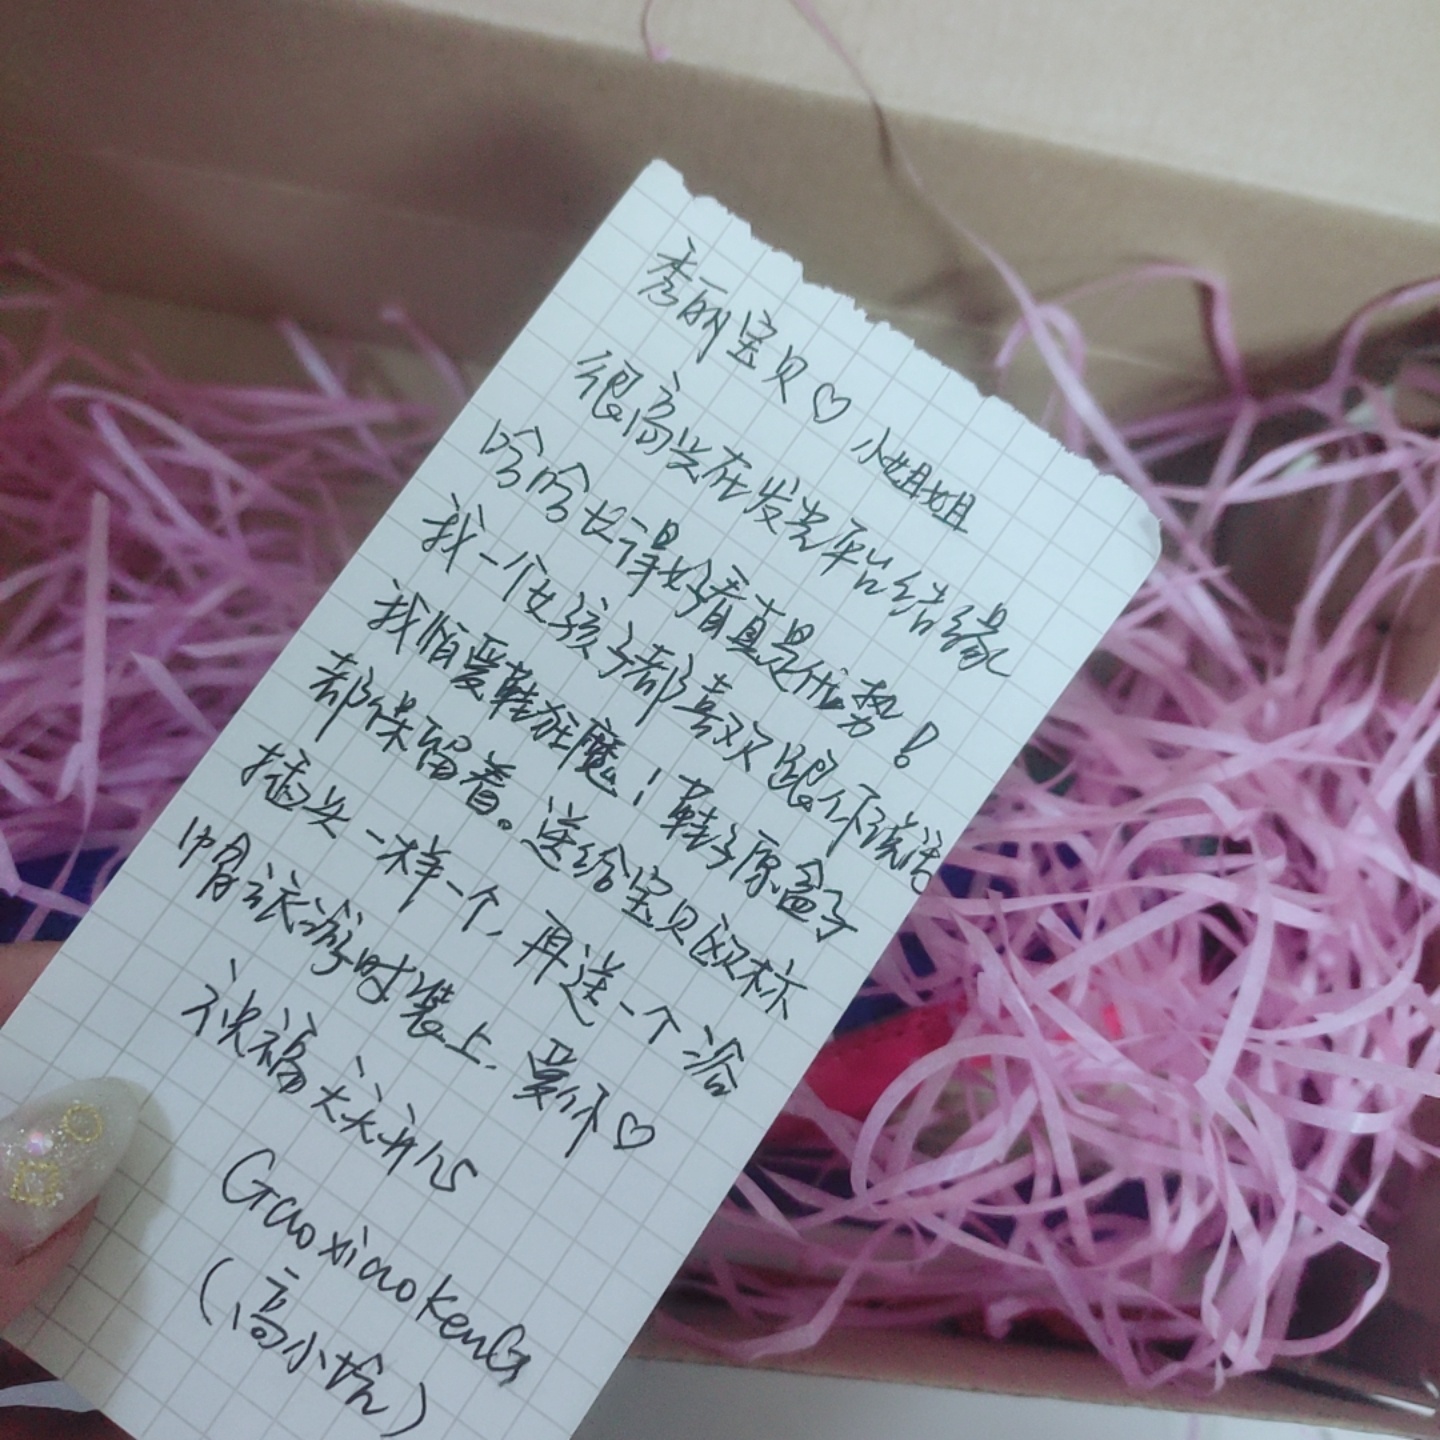 秀丽宝贝♡小姐姐
很高兴在发光平台结缘
哈哈长得好看真是优势!
我一个女孩子都喜欢跟你说话
我怕爱鞋狂魔!鞋子原盒子
都保留着。送给宝贝欧标
插头一样一个,再送一个浴
帽旅游时装上.爱你♡
祝福天天开心
GaoxiaokenG
(高小坑)